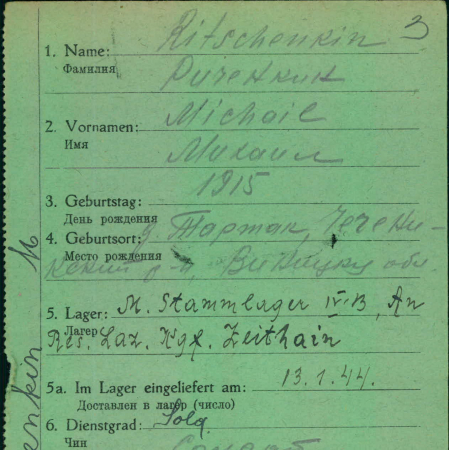 3
1. Name: Ritschenkin
Фамилия Риченкин
2. Vornamen: Michail
Имя Михаил
3. Geburtstag: 1915
День рождения
4. Geburtsort: Тартак,
Место рождения
5. Lager: M. Stammlager IV-B, An
Лагерь
Res. Laz. Kgf. Zeithain
5a. Im Lager eingeliefert am: 13.1.44.
Доставлен в лагер (число)
6. Dienstgrad: Sold.
Чин Солдат